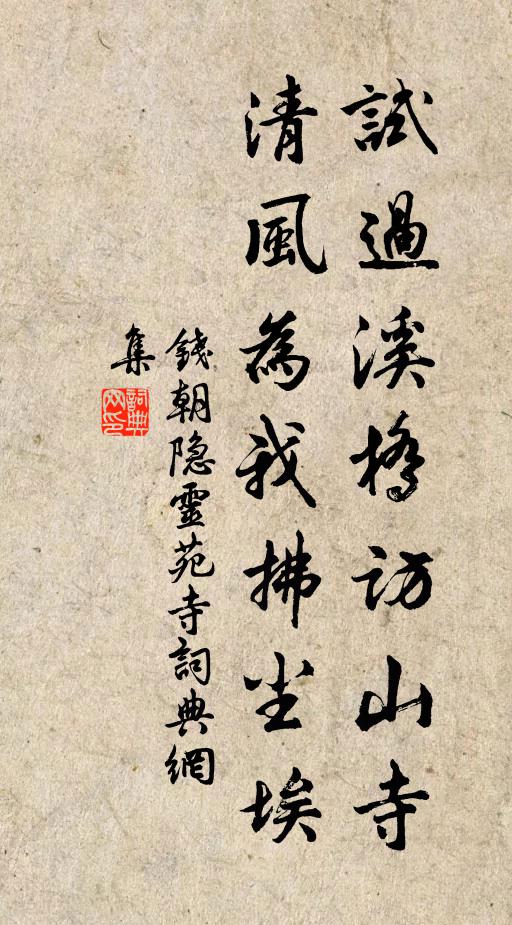 試過溪橋訪山寺
清風為我拂尘埃
錢朝隐靈苑寺詞典網
集
詞典
网印